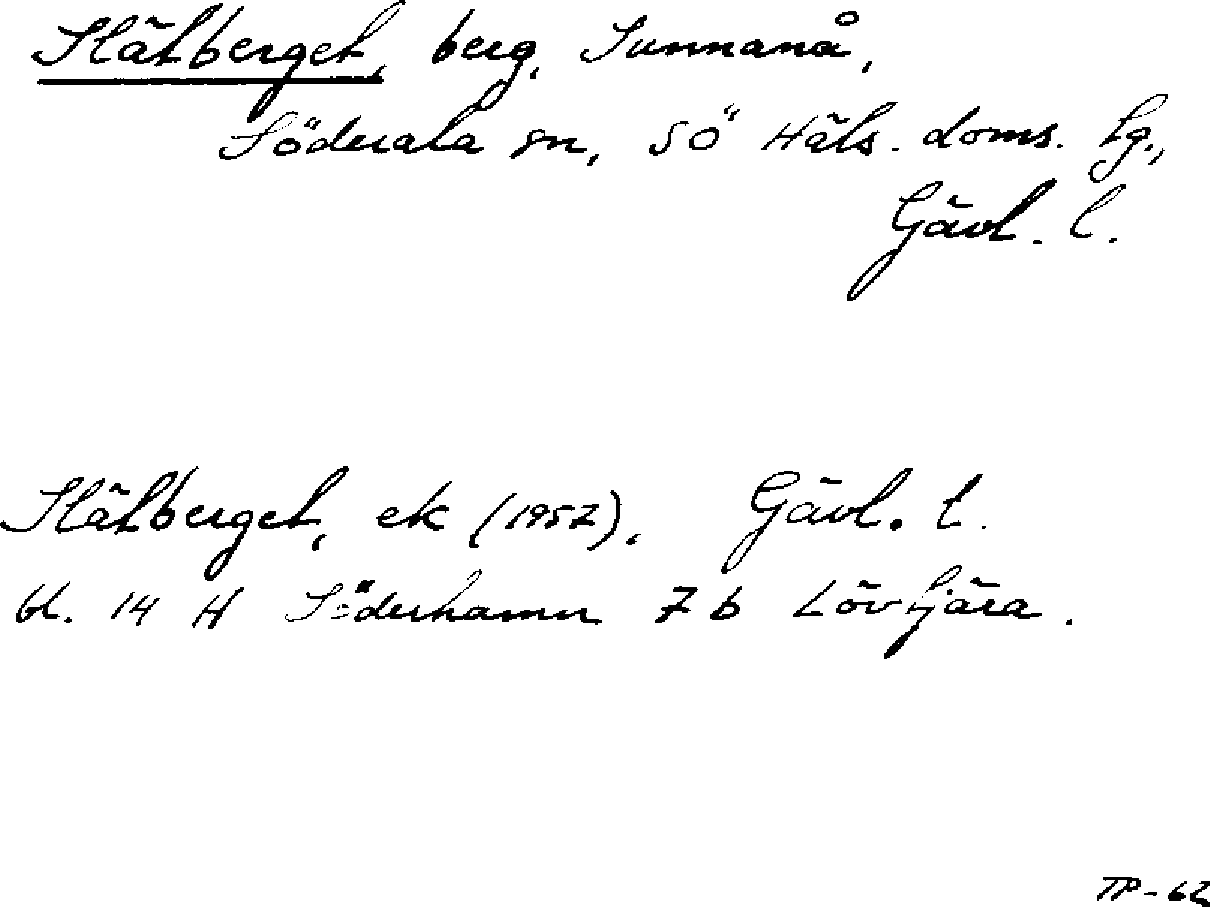 Slätberget, berg, Sunnanå,
Söderala sn, SÖ Häls. doms. lg.,
Gävl. l.
Slätberget, ek (1957), Gävl. l.
bl. 14 H Söderhamn 7 b Lövtjära.
TP-62